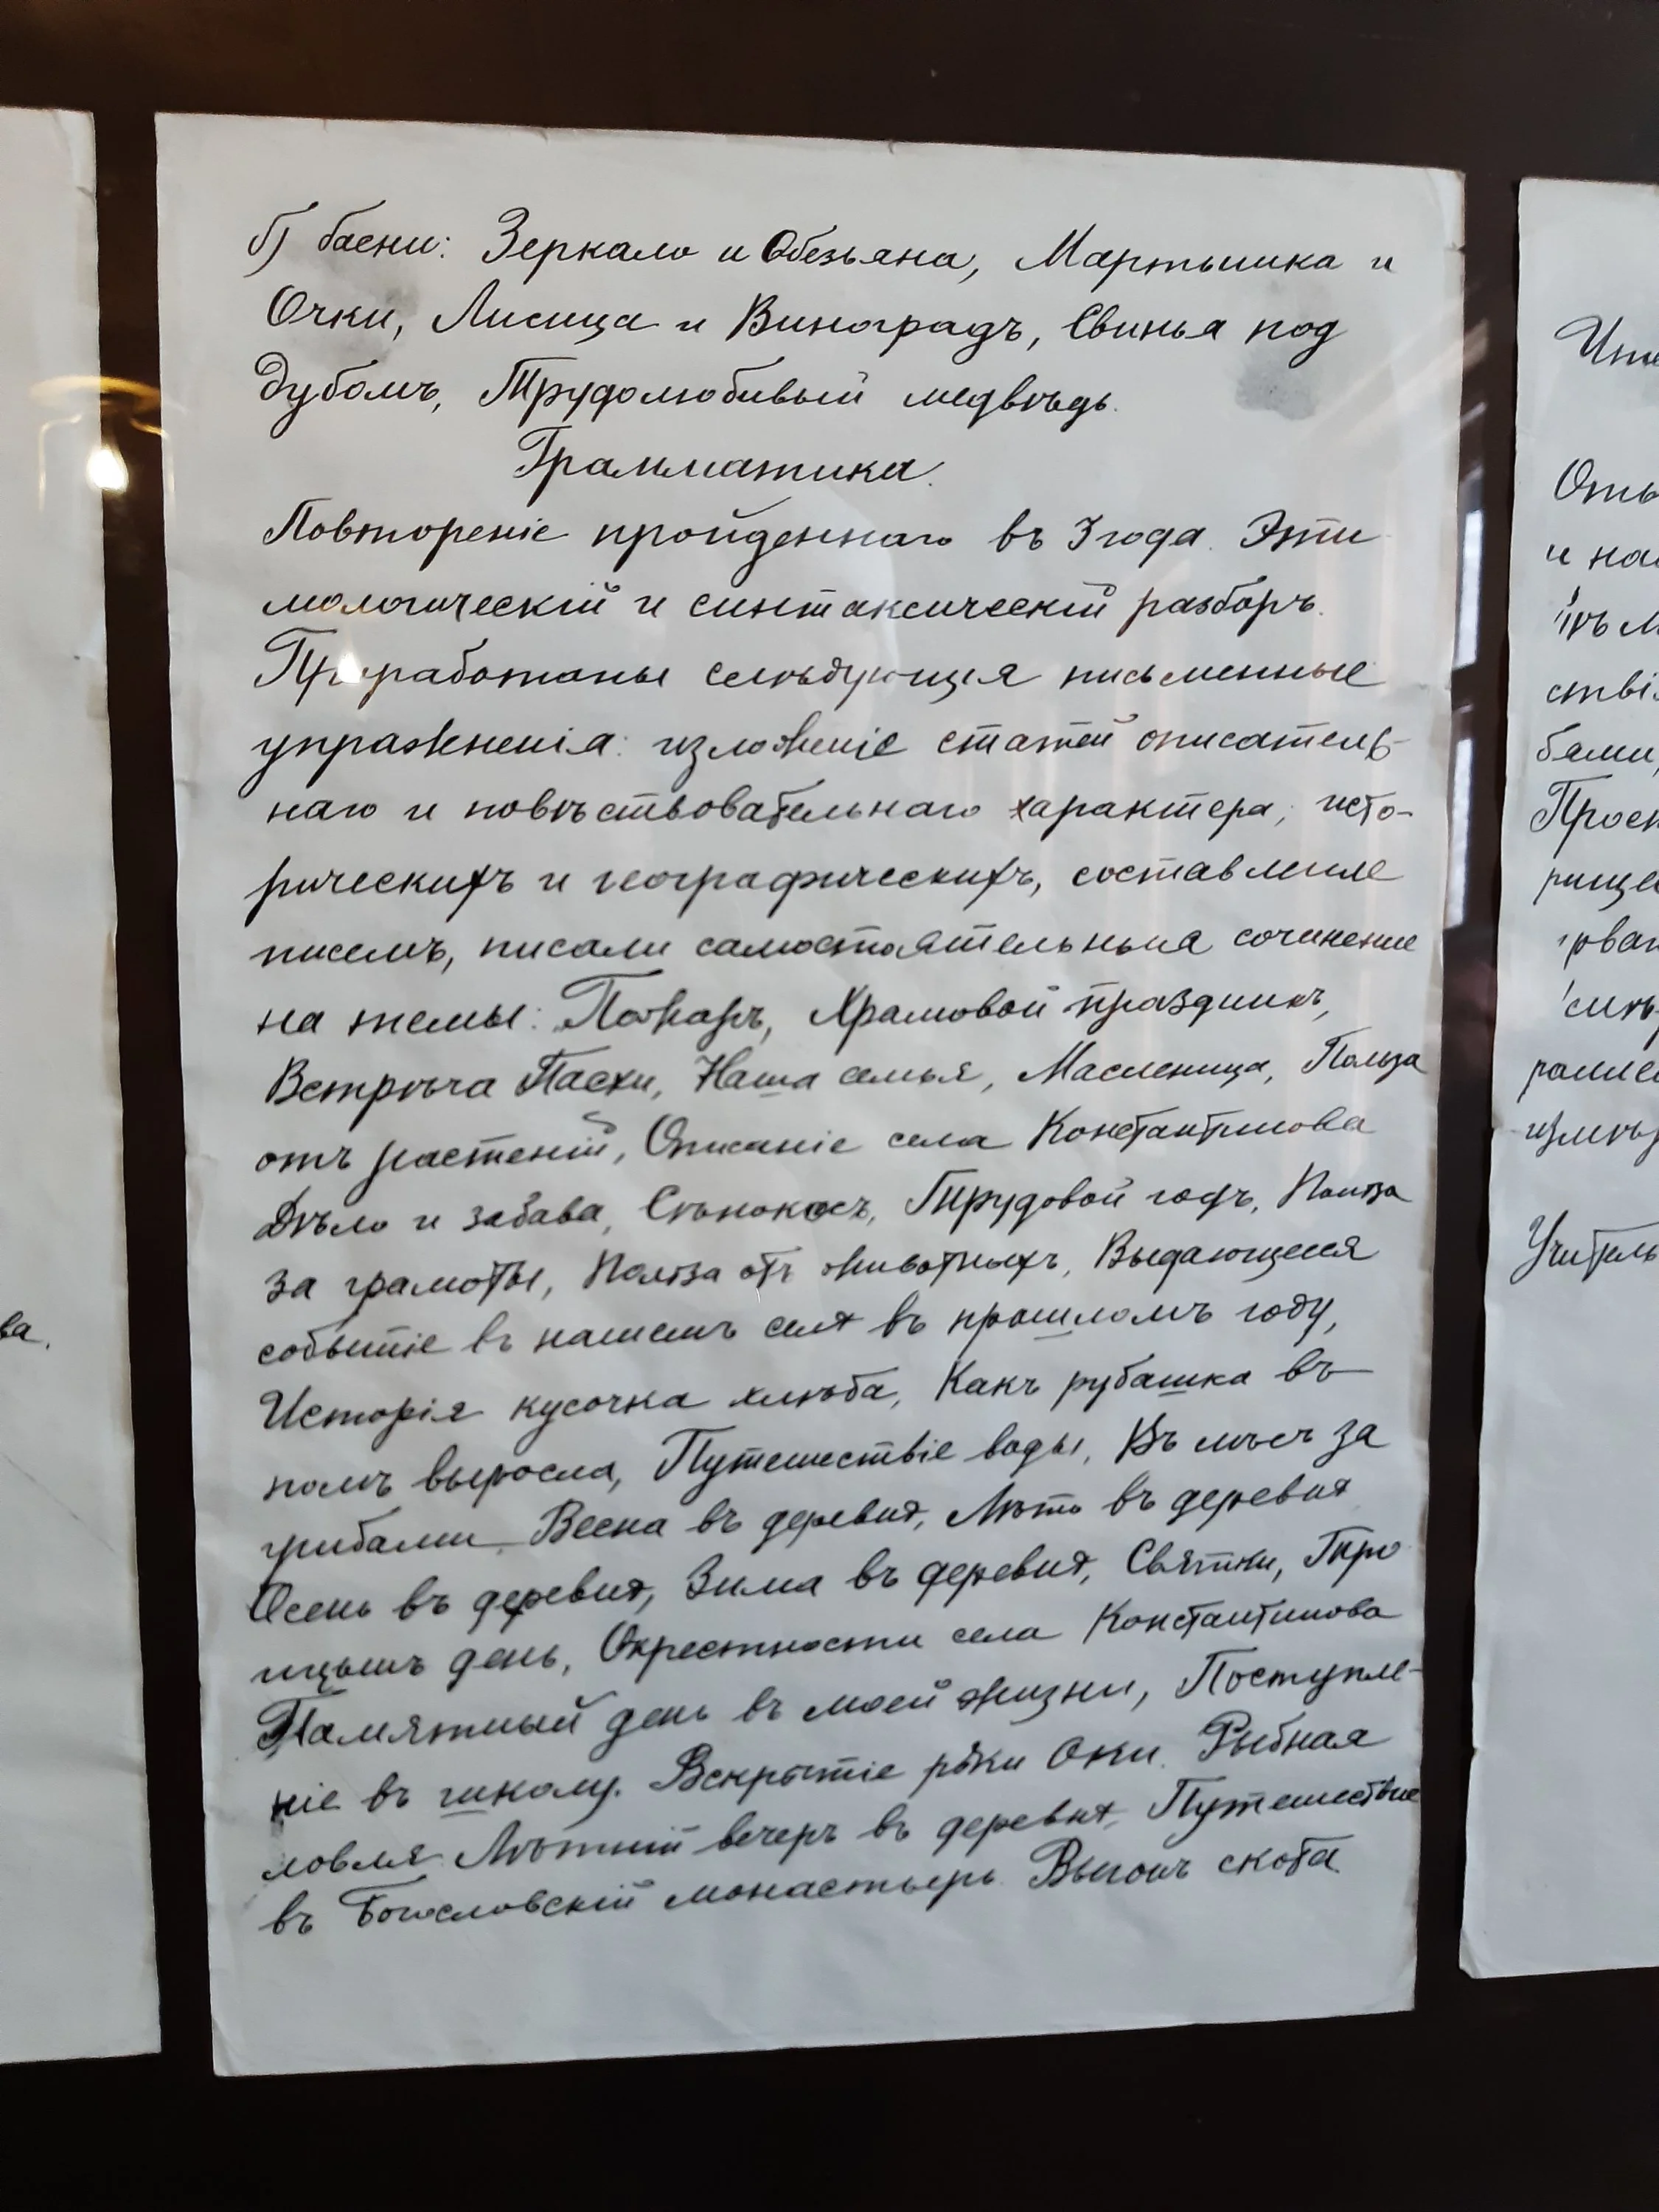 б) басни: Зеркало и Обезьяна, Мартышка и
Очки, Лисица и Виноградъ, Свинья под
дубомъ, Трудолюбивый медвѣдь.
Грамматика.
Повтореніе пройденнаго въ 3 года. Эти
мологическій и синтаксическій разборъ.
Проработаны слѣдующія письменные
упражненія: изложеніе статей описатель-
наго и повѣствовательнаго характера, исто-
рическихъ и географическихъ, составление
писемъ, писали самостоятельныя сочинение
на темы: Пожаръ, Храмовой праздникъ,
Встрѣча Пасхи, Наша семья, Масленица, Польза
отъ растеній, Описаніе села Константинова
Дѣло и забава, Сѣнокосъ, Трудовой годъ, Польза
за грамоты, Польза отъ животныхъ, Выдающееся
событіе въ нашемъ селѣ въ прошломъ году,
Исторія кусочка хлѣба, Какъ рубашка въ
полѣ выросла, Путешествіе воды, Въ лѣсъ за
грибами. Весна въ деревнѣ, Лѣто въ деревнѣ
Осень въ деревнѣ, Зима въ деревнѣ, Святки, Тро
ицынъ день, Окрестности села Константинова
Памятный день въ моей жизни, Поступле-
ніе въ школу. Вскрытіе рѣки Оки. Рыбная
ловля. Лѣтній вечеръ въ деревнѣ, Путешествие
въ Богословскій монастырь. Выгонъ скота
ва.
Оть
и на
ствi
бами,
рище
Учитель